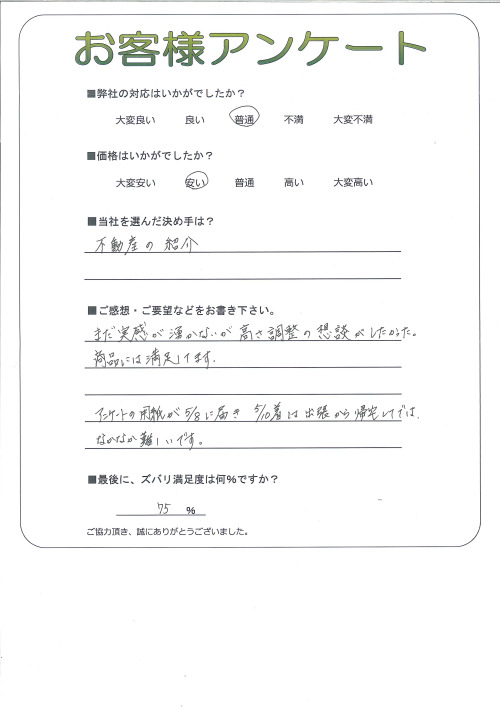 お客様アンケート
■弊社の対応はいかがでしたか？
大変良い 良い 普通 不満 大変不満
■価格はいかがでしたか？
大変安い 安い 普通 高い 大変高い
■当社を選んだ決め手は？
不動産の紹介
■ご感想・ご要望などをお書き下さい。
まだ実感が湧かないが高さ調整の想談がしたかった。
商品には満足してます.
アンケートの用紙が5/8に届き 5/10着は出張から帰宅しては、
なかなか難しいです。
■最後に、ズバリ満足度は何％ですか？
75 ％
ご協力頂き、誠にありがとうございました。